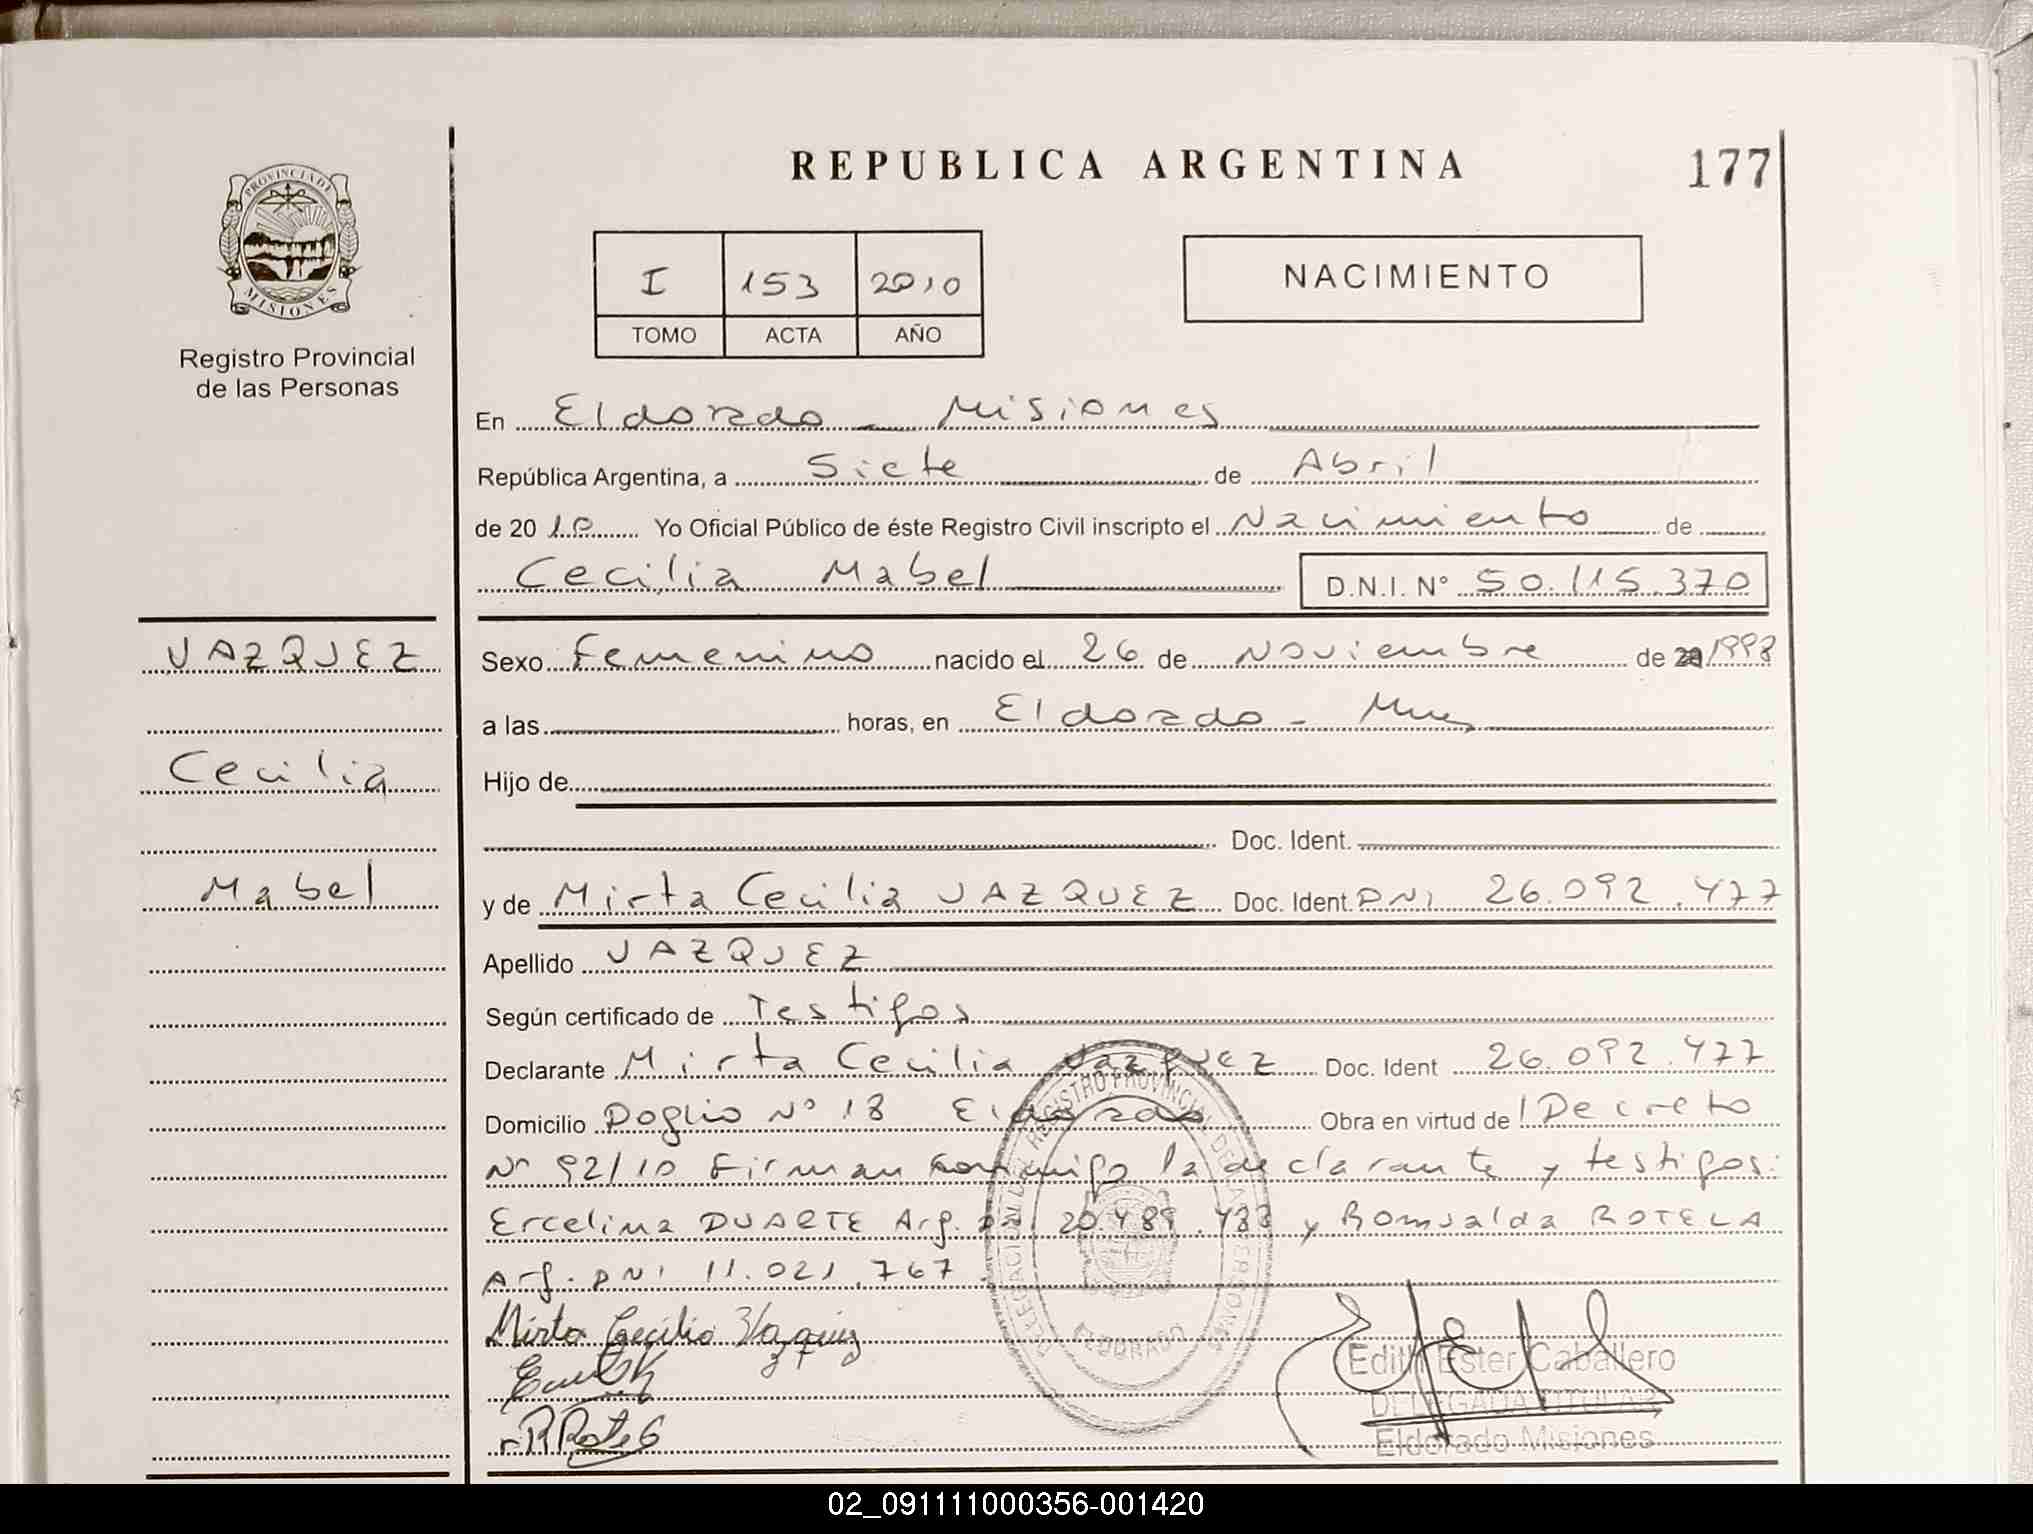 REPUBLICA ARGENTINA
177
PROVINCIA DE
MISIONES
Registro Provincial
de las Personas
I 153 2010
TOMO ACTA AÑO
NACIMIENTO
En Eldorado - Misiones
República Argentina, a Siete de Abril
de 20 10 Yo Oficial Público de éste Registro Civil inscripto el Nacimiento de
Cecilia Mabel D.N.I. N° 50.115.370
VAZQUEZ
Cecilia
Mabel
Sexo Femenino nacido el 26 de Noviembre de 1998
a las horas, en Eldorado - Mnes
Hijo de
Doc. Ident.
y de Mirta Cecilia VAZQUEZ Doc. Ident. DNI 26.092.477
Apellido VAZQUEZ
Según certificado de Testigos
Declarante Mirta Cecilia Vazquez Doc. Ident 26.092.477
Domicilio Doglio N° 18 Eldorado Obra en virtud de Decreto
N° 92/10 Firman conmigo la declarante y testigos:
Ercelina DUARTE Arg. DNI 20.489. y Romualda ROTELA
Arg. DNI 11.021.767
Mirta Cecilia Vazquez
DELEGACION DEL REGISTRO PROVINCIAL DE LAS PERSONAS
ELDORADO
Edith Ester Caballero
DELEGADA TITULAR
Eldorado Misiones
02_091111000356-001420